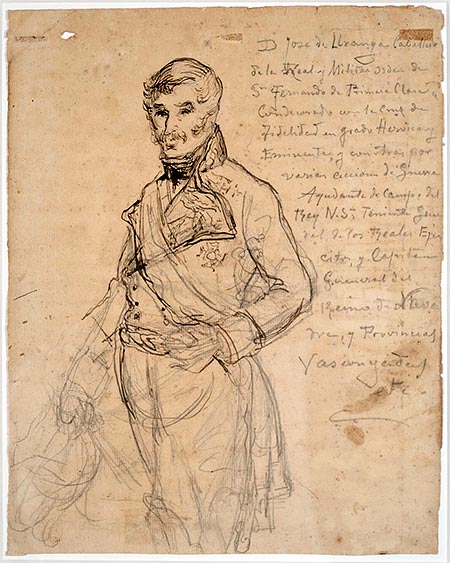 D Jose de Uranga Caballero
de la Real y Militar orden de
Sn Fernando de Primera Clase y
Condecorado con la Cruz de
Fidelidad en grado Heroico y
Eminente, y con otras por
varias acciones de Guerra
Ayudante de Campo del
Rey N. Sr Teniente Gene
ral de los Reales Eger
citos, y Capitan
General del
Reino de Nava
rra, y Provincias
Vascongadas
etc